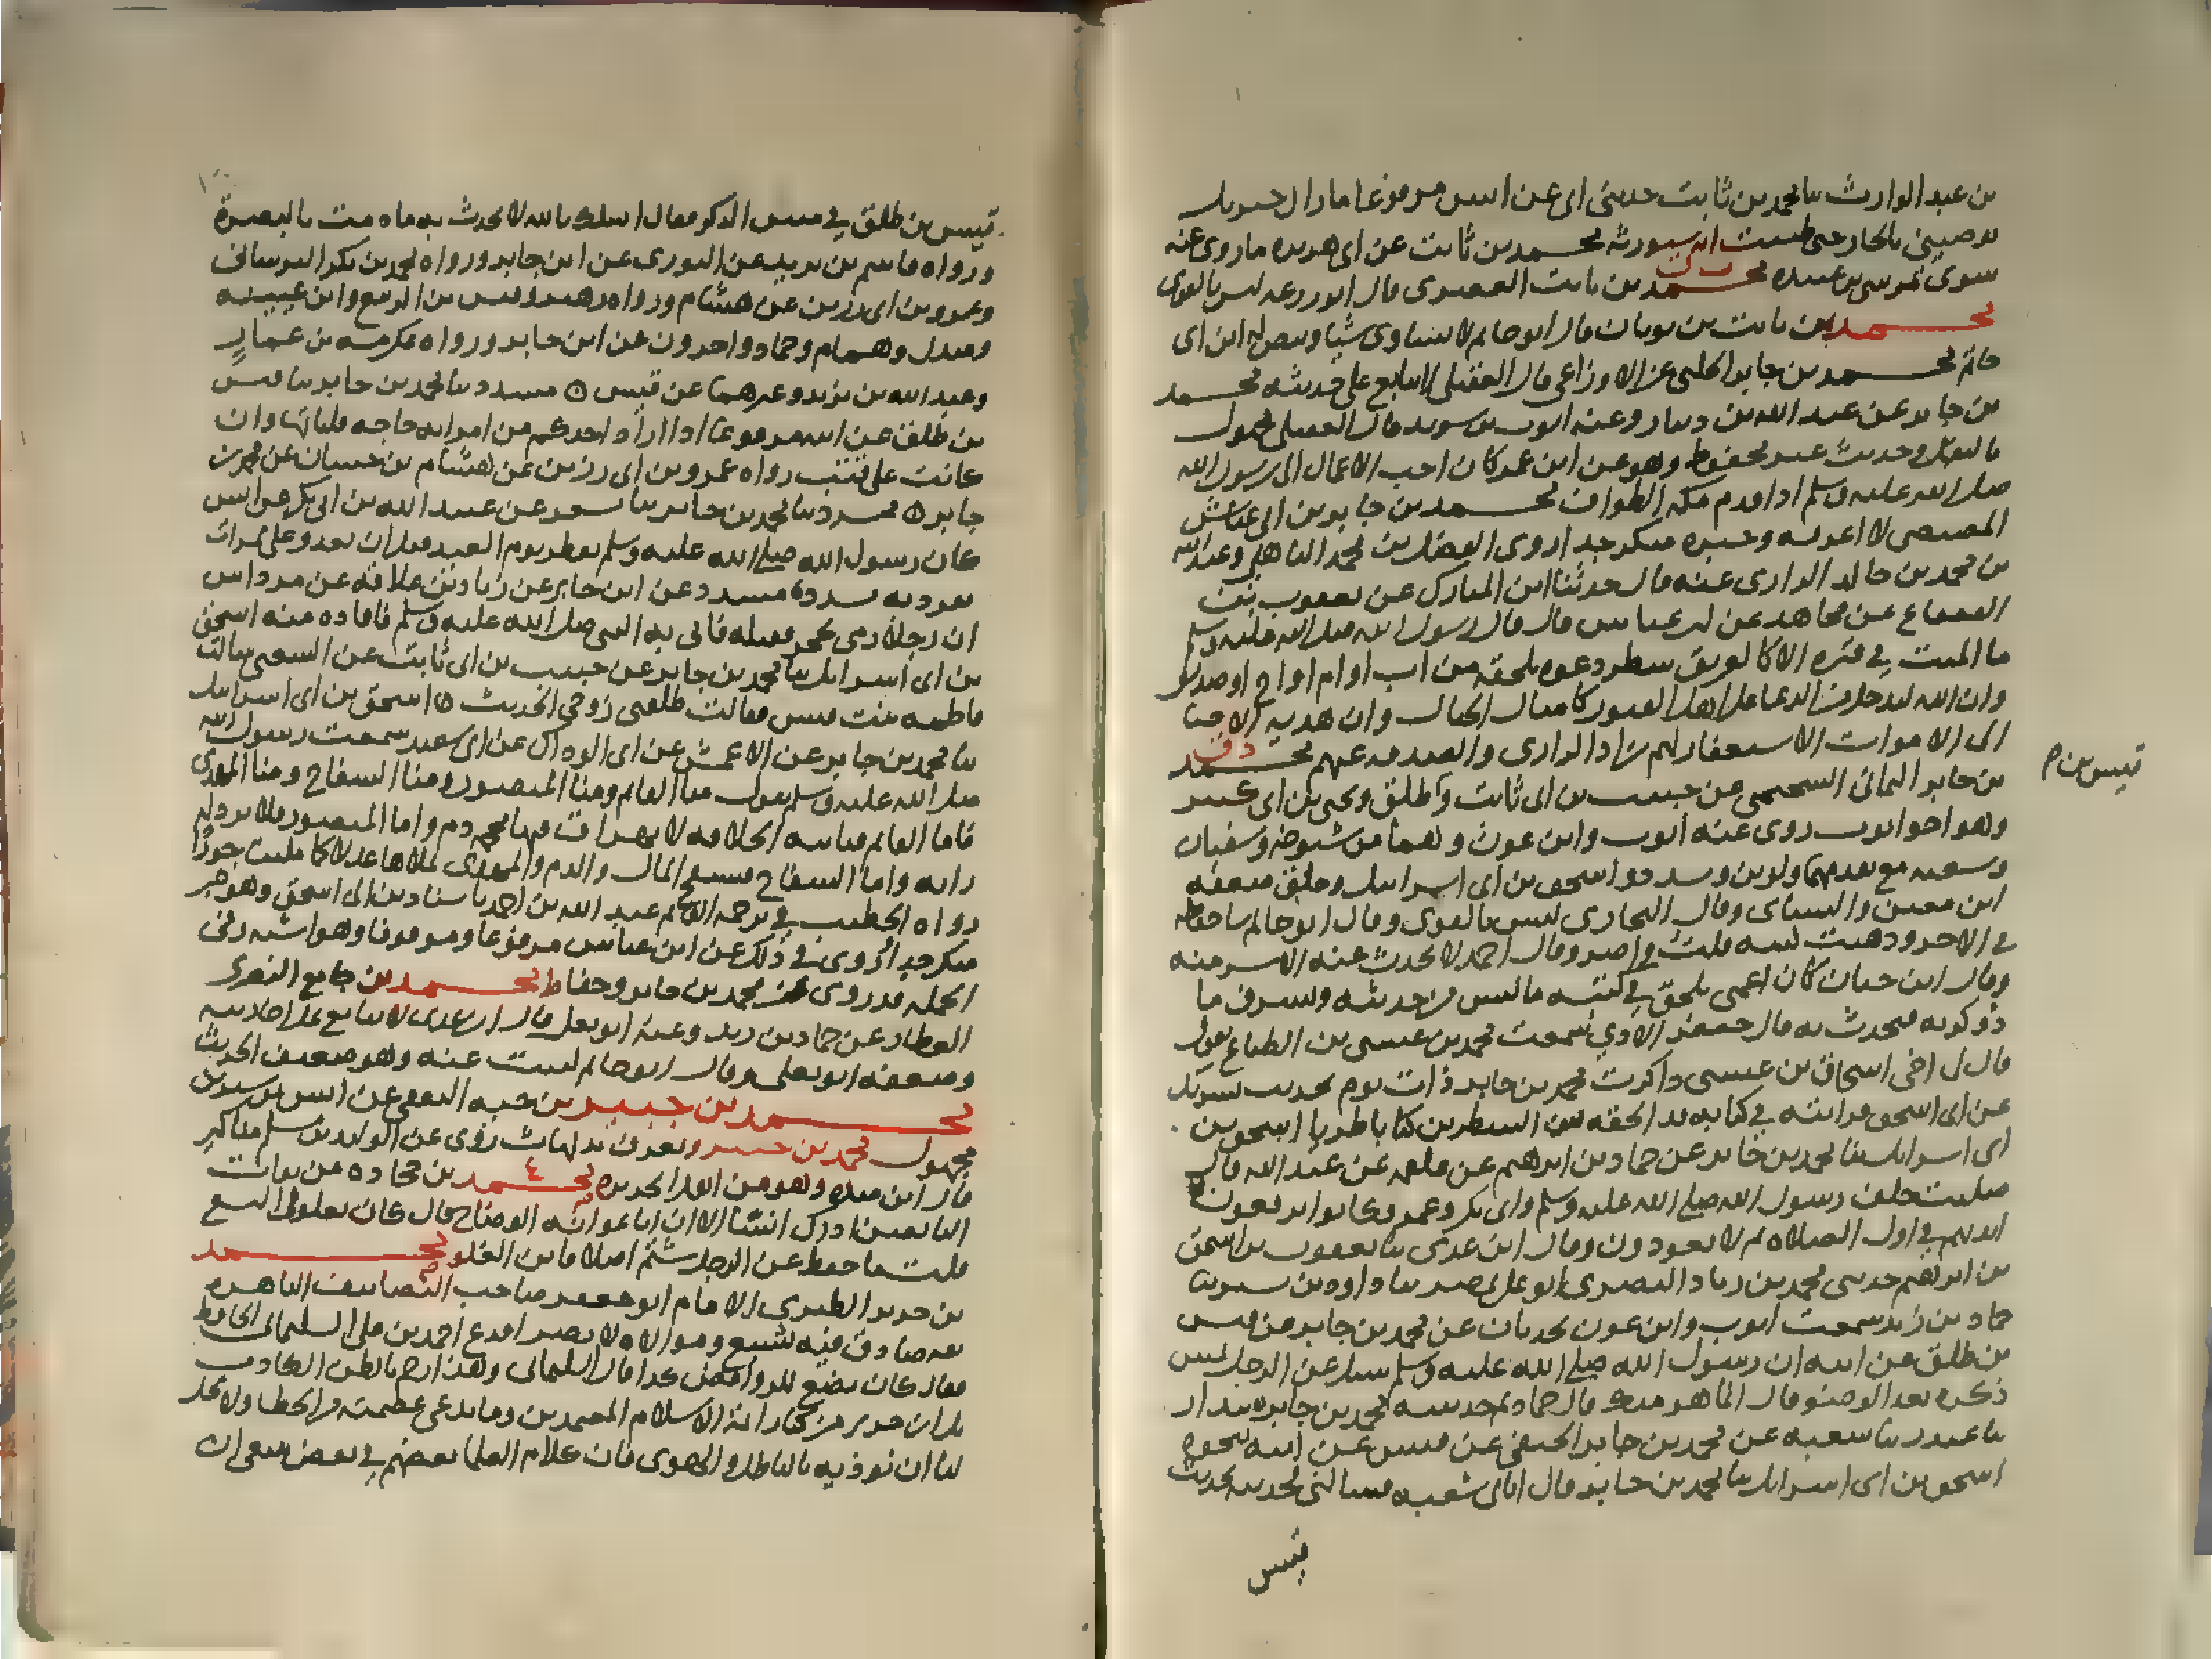 بن عبد الوارث ثنا محمد بن ثابت حدثني ابي عن انس مرفوعا ما زال جبريل
يوصيني بالجار حتى ظننت انه سيورثه محمد بن ثابت عن ابي هريرة ما روى عنه
سوى موسى بن عبيدة محمد بن ثابت العصرى قال ابو زرعه ليس بالقوى
محمد بن ثابت بن ثوبان قال ابو حاتم لا يساوى شيا وبيض له ابن ابي
حاتم محمد بن جابر الحلبى عن الاوزاعى قال العقيلى لا يتابع على حديثه محمد
بن جابر عن عبد الله بن دينار وعنه ايوب بن سويد قال العقيلى مجهول
بالنقل وحديثه غير محفوظ وهو عن ابن عمر كان احب الاعمال الى رسول الله
صلى الله عليه وسلم اذا قدم مكه الطواف محمد بن جابر بن ابي عياش
المصيصى لا اعرفه وخبره منكر جدا روى الفضل بن محمد الباهلى وعبد الله
بن محمد بن خالد الرازى عنه قال حدثنا ابن المبارك عن يعقوب بن
القعقاع عن مجاهد عن ابن عباس قال قال رسول الله صلى الله عليه وسلم
ما الميت في قبره الا كالغريق ينتظر دعوه تلحقه من اب او ام او اخ او صديق
وان الله ليدخل من الدعا على اهل القبور كامثال الجبال وان هدية الاحيا
الى الاموات الاستغفار لهم زاد الرازى والصدقه عنهم محمد دق
بن جابر اليمانى السحيمى عن حبيب بن ابي ثابت وقيس بن طلق ويحيى بن ابي كثير
وهو اخو ايوب روى عنه ايوب وابن عون وهما من شيوخه وسفيان
وشعبه مع تقدمهما ولوين ومسدد واسحق بن ابي اسرائيل وخلق ضعفه
ابن معين والنسائى وقال البخارى ليس بالقوى وقال ابو حاتم ساء حفظه
في الاخر وذهبت كتبه وقال احمد لا يحدث عنه الا شر منه
وقال ابن حبان كان اعمى يلحق في كتبه ما ليس من حديثه ويسرق ما
ذوكر به فيحدث به قال جعفر سمعت محمد بن عيسى بن الطباع يقول
قال لى اخى اسحاق بن عيسى ذاكرت محمد بن جابر ذات يوم بحديث لشريك
عن ابي اسحق فرايته في كتابه قد الحقه بين السطرين كتابا طريا اسحق بن
ابي اسرائيل ثنا محمد بن جابر عن حماد عن ابرهيم عن علقمه عن عبد الله قال
صليت خلف رسول الله صلى الله عليه وسلم وابي بكر وعمر فكانوا يرفعون
ايديهم في اول الصلاه ثم لا يعودون وقال ابن عدى ثنا يعقوب بن اسحق
بن ابرهيم حدثنى محمد بن زياد النصرى ابو على بمصر ثنا داوود بن ثنا
حماد بن زيد سمعت ايوب وابن عون يحدثان عن محمد بن جابر عن قيس
بن طلق عن ابيه ان رسول الله صلى الله عليه وسلم سئل عن الرجل يمس
ذكره بعد الوضو فقال انما هو منك قال حماد ثم حدثنيه محمد بن جابر بندار
ثنا غندر ثنا شعبه عن محمد بن جابر الحنفى عن قيس عن ابيه نحوه
اسحق بن ابي اسرائيل ثنا محمد بن جابر قال اتانى شعبه فسالنى
قيس
قيس بن
قيس بن طلق في مس الذكر فقال اسلك بالله لا تحدث به ما دمت بالبصرة
ورواه قاسم بن يزيد عن الثورى عن ابن جابر ورواه محمد بن بكر البرسانى
وعمرو بن ابي رزين عن هشام ورواه زهير وقيس بن الربيع وابن عيينه
ومندل وهمام وحماد واخرون عن ابن جابر ورواه عكرمه بن عمار
وعبد الله بن بدر وغيرهما عن قيس مسدد ثنا محمد بن جابر ثنا قيس
بن طلق عن ابيه مرفوعا اذا اراد احدكم من امراته حاجه فلياتها وان
كانت على قتب رواه عمرو بن ابي رزين عن هشام بن حسان عن محمد بن
جابر مسدد ثنا محمد بن جابر ثنا عن عبيد الله بن ابي بكر عن انس
كان رسول الله صلى الله عليه وسلم يفطر يوم العيد قبل ان يغدو على تمرات
مسدد عن ابن جابر عن زياد بن علاقه عن مرداس
ان رجلا رمى بحجر فقتله فاتى به النبي صلى الله عليه وسلم فاقاده منه اسحق
بن ابي اسرائيل ثنا محمد بن جابر عن حبيب بن ابي ثابت عن الشعبى قالت
فاطمه بنت قيس فقالت طلقنى زوجى الحديث اسحق بن ابي اسرائيل
ثنا محمد بن جابر عن الاعمش عن ابي الوداك عن ابي سعيد سمعت رسول الله
صلى الله عليه وسلم يقول منا القائم ومنا المنصور ومنا السفاح ومنا المهدى
فاما القائم فتاتيه الخلافه لا يهراق فيها محجمه دم واما المنصور فلا ترد له
رايه واما السفاح فيسفح المال والدم والمهدى يملاها عدلا كما ملئت جورا
رواه الخطيب في ترجمه القائم عبد الله بن احمد باسنادين الى اسحق وهو خبر
منكر جدا روى في ذلك عن ابن عباس مرفوعا وموقوفا وهو اشبه وفى
الجمله قد روى عن محمد بن جابر وحفاظ محمد بن جامع البصرى
العطار عن حماد بن زيد وعنه ابو يعلى قال ابن عدى لا يتابع على احاديثه
وضعفه ابو يعلى وقال ابو حاتم كتبت عنه وهو ضعيف الحديث
محمد بن جبير بن حيه الثقفى عن
مجهول محمد بن روى عن الوليد بن مسلم مناكير
قال ابن منده وهو من اهل محمد بن جحاده من ثقات
التابعين ادرك انسا الا ان ابا عوانه الوضاح قال كان يغلو في التشيع
قلت ما حفظ عن الرجل شتم اصلا فاين الغلو محمد
بن جرير الطبرى الامام ابو جعفر صاحب التصانيف الباهره
ثقه صادق فيه تشيع وموالاه لا تضر اقذع احمد بن على السليمانى الحافظ
فقال كان يضع للروافض كذا قال السليمانى وهذا رجم بالظن الكاذب
بل ابن جرير من كبار ائمة الاسلام المعتمدين وما ندعى عصمته من الخطا ولا يحل
لنا ان نوذيه بالباطل والهوى فان كلام العلما بعضهم في بعض ينبغى ان